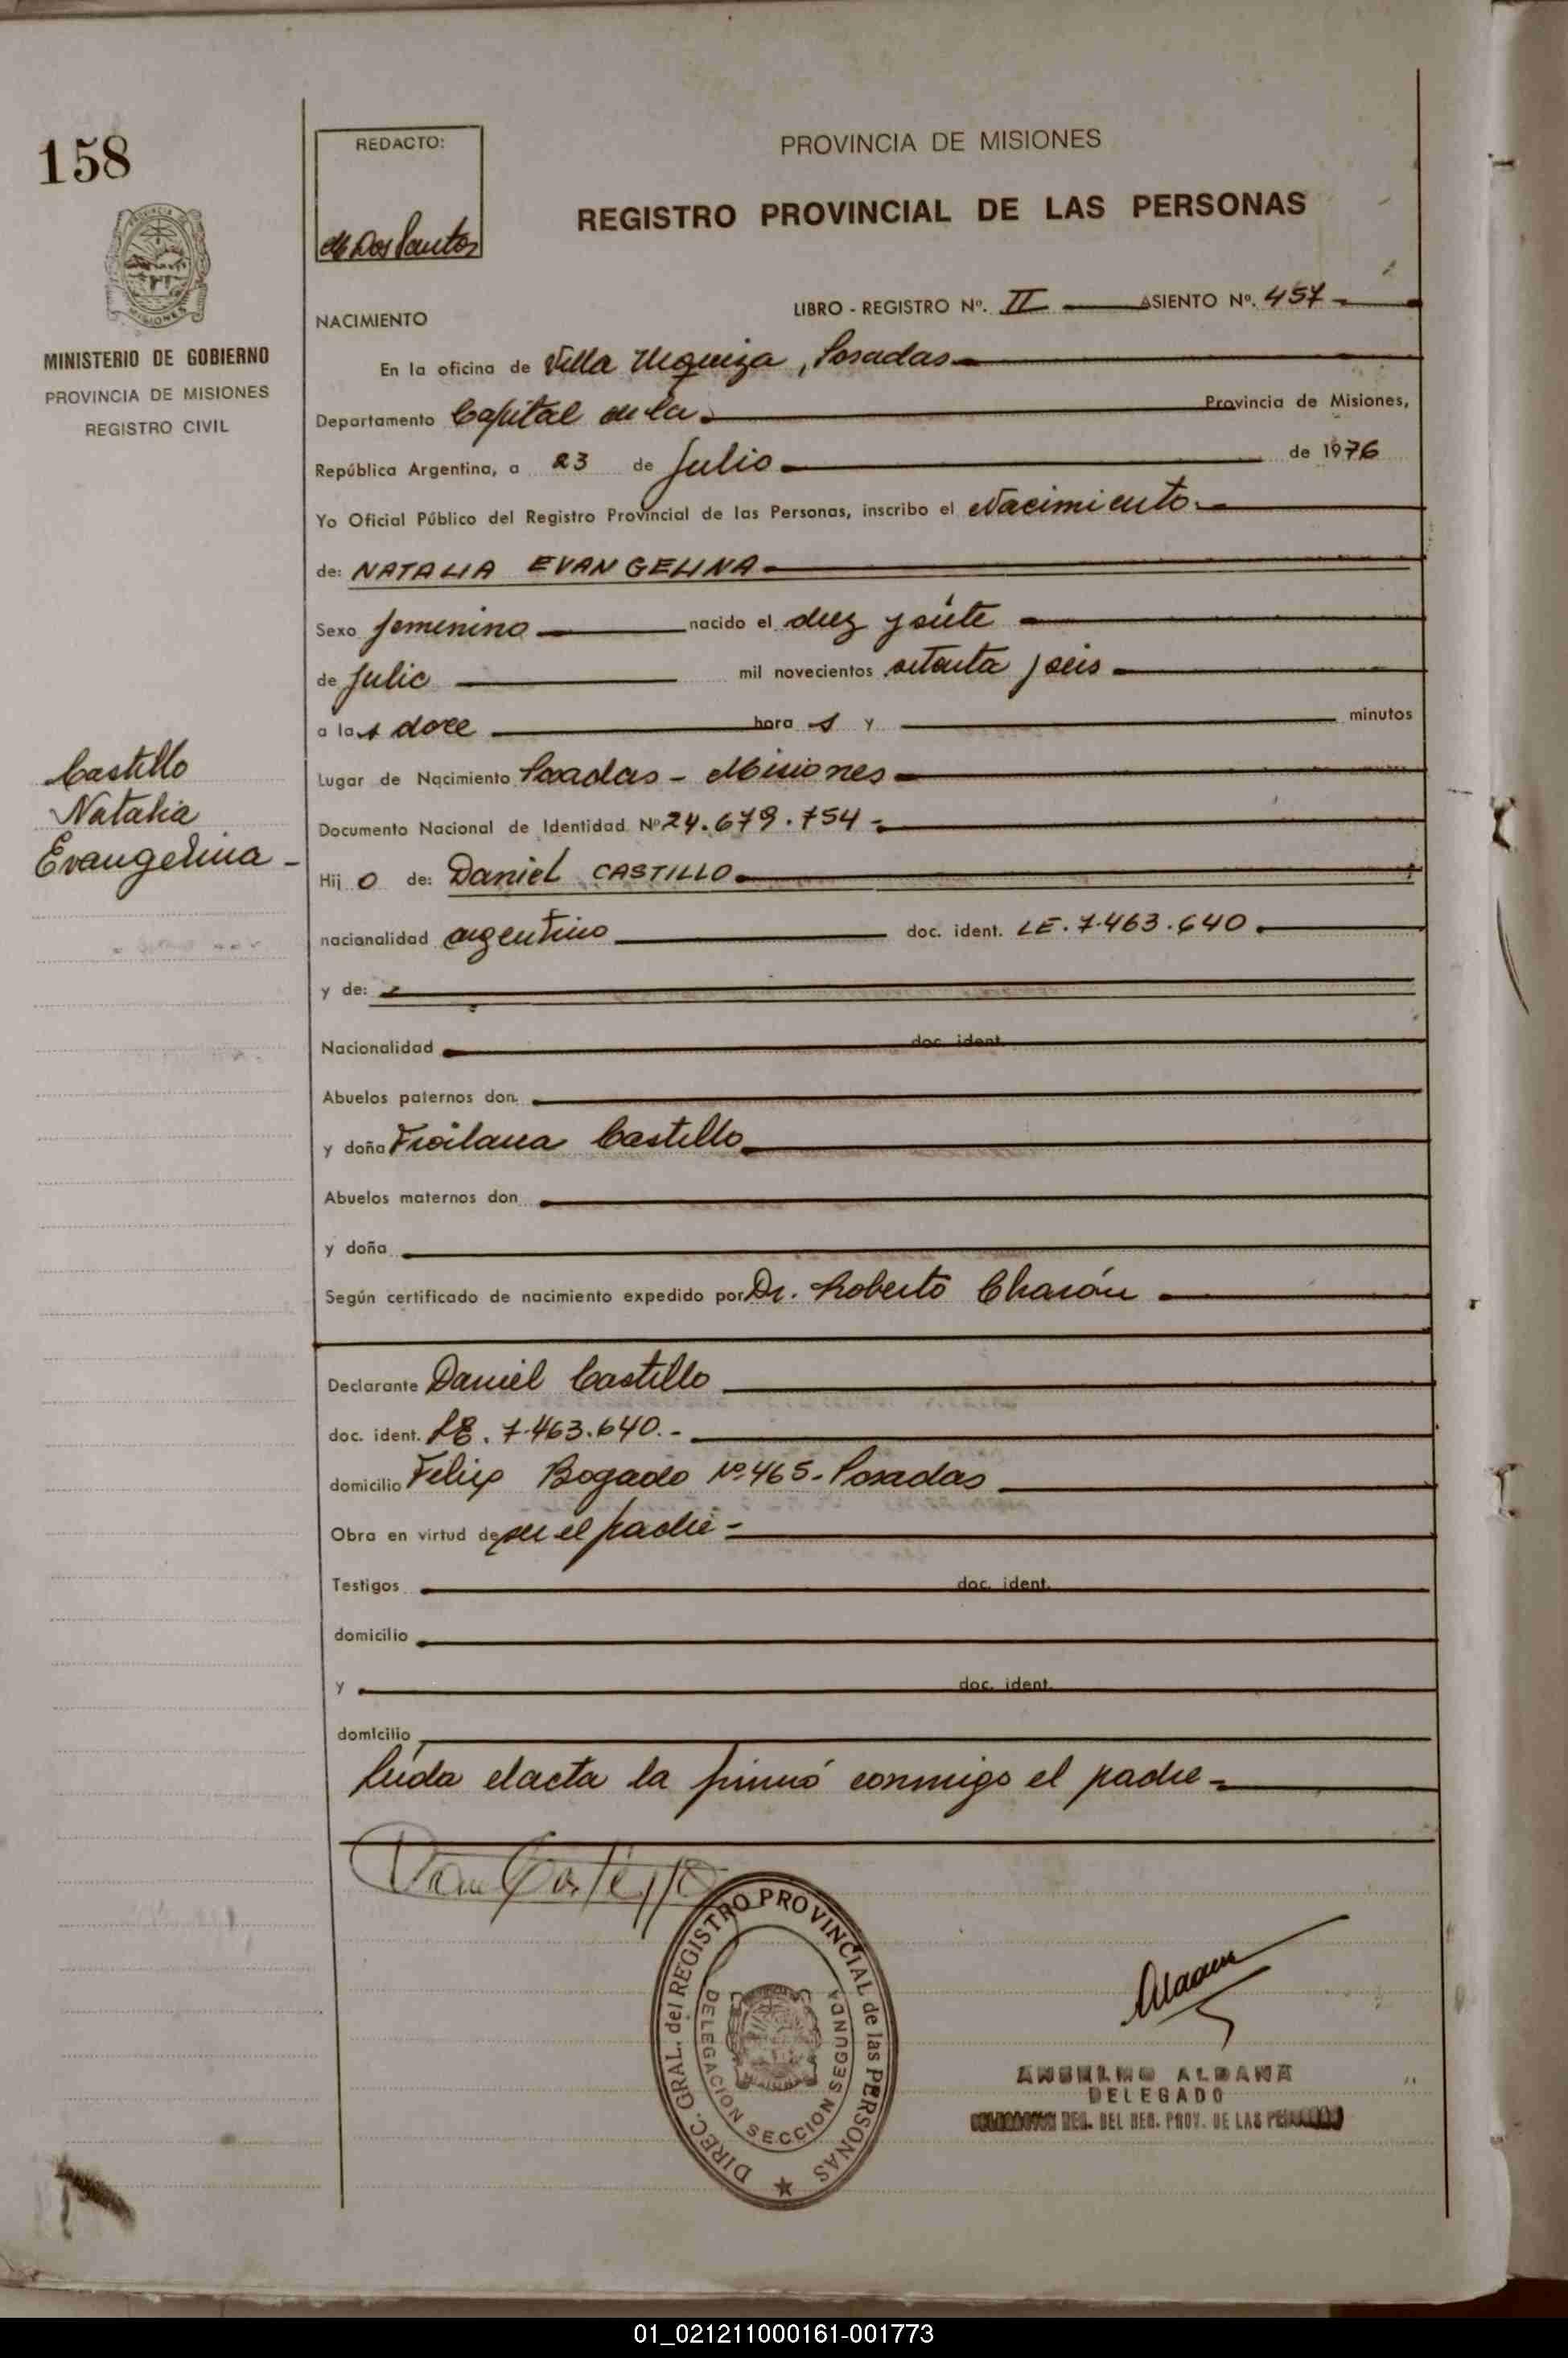 158
REDACTO:
M Dos Santos
PROVINCIA DE MISIONES
REGISTRO PROVINCIAL DE LAS PERSONAS
MINISTERIO DE GOBIERNO
PROVINCIA DE MISIONES
REGISTRO CIVIL
NACIMIENTO
LIBRO - REGISTRO Nº. II ASIENTO Nº. 457
En la oficina de Villa Urquiza, Posadas
Departamento Capital de la Provincia de Misiones,
República Argentina, a 23 de Julio de 1976
Yo Oficial Público del Registro Provincial de las Personas, inscribo el Nacimiento
de: NATALIA EVANGELINA
Sexo femenino nacido el diez y siete
de Julio mil novecientos setenta y seis
a las doce horas y minutos
Lugar de Nacimiento Posadas - Misiones
Castillo
Natalia
Evangelina -
Documento Nacional de Identidad Nº 24.679.754 -
Hijo de: Daniel CASTILLO
nacionalidad argentino doc. ident. LE. 7.463.640
y de:
Nacionalidad doc. ident.
Abuelos paternos don.
y doña Froilana Castillo
Abuelos maternos don
y doña
Según certificado de nacimiento expedido por Dr. Roberto Charón
Declarante Daniel Castillo
doc. ident. LE. 7.463.640.-
domicilio Felix Bogado Nº 465- Posadas
Obra en virtud de ser el padre -
Testigos doc. ident.
domicilio
y doc. ident.
domicilio
Leída el acta la firmó conmigo el padre -
DIREC. GRAL. del REGISTRO PROVINCIAL de las PERSONAS
DELEGACION SECCION SEGUNDA
ANSELMO ALDANA
DELEGADO
DEL REG. PROV. DE LAS
01_021211000161-001773